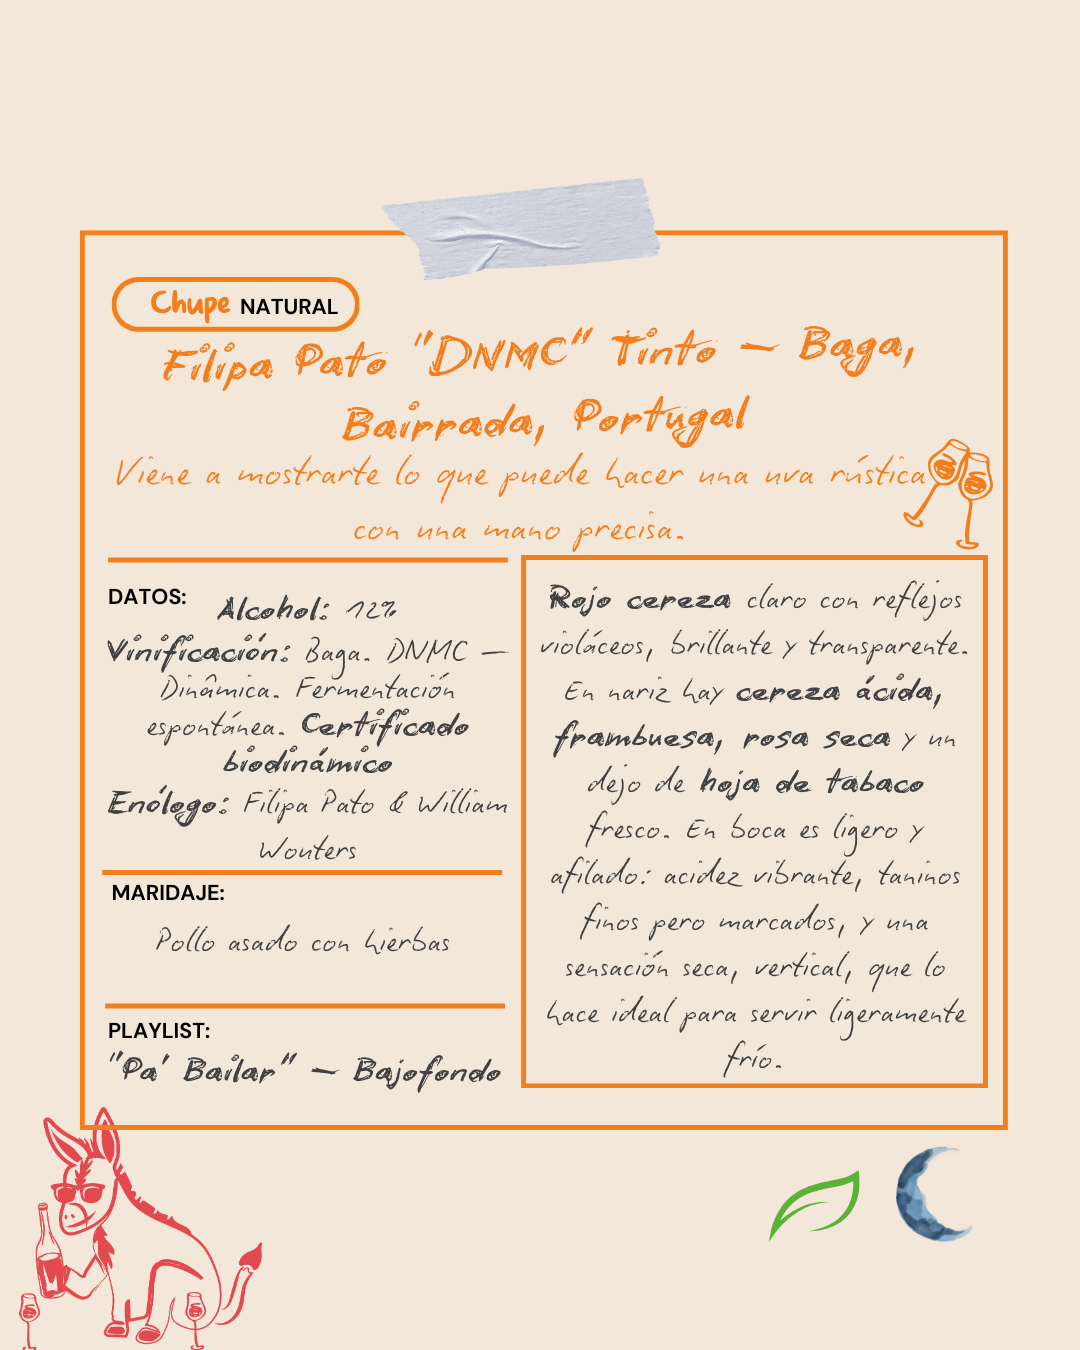 Chupe NATURAL
Filipa Pato "DNMC" Tinto – Baga,
Bairrada, Portugal
Viene a mostrarte lo que puede hacer una uva rústica
con una mano precisa.
DATOS:
Alcohol: 12%
Vinificación: Baga. DNMC –
Dinâmica. Fermentación
espontánea. Certificado
biodinámico
Enólogo: Filipa Pato & William
Wouters
MARIDAJE:
Pollo asado con hierbas
PLAYLIST:
"Pa' Bailar" – Bajofondo
Rojo cereza claro con reflejos
violáceos, brillante y transparente.
En nariz hay cereza ácida,
frambuesa, rosa seca y un
dejo de hoja de tabaco
fresco. En boca es ligero y
afilado: acidez vibrante, taninos
finos pero marcados, y una
sensación seca, vertical, que lo
hace ideal para servir ligeramente
frío.